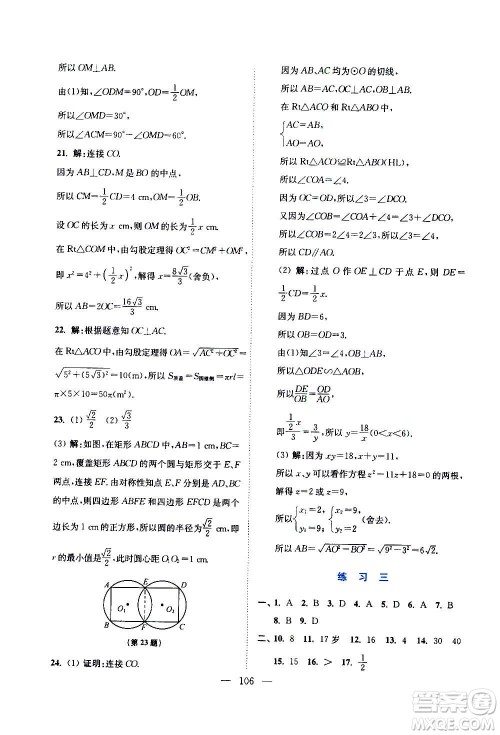 所以 OM⊥AB.
由(1)知, ∠ODM=90°, OD=1/2 OM,
所以∠OMD=30°.
所以∠ACM=90°-∠OMD=60°.
21. 解:连接 CO.
因为 AB⊥CD, M 是 BO 的中点,
所以 CM=1/2 CD=4 cm, OM=1/2 OB.
设 OC 的长为 x cm, 则 OM=1/2 x cm.
在 Rt△COM 中, 由勾股定理得 OC²=CM²+OM²,
即 x²=4²+(1/2 x)², 解得 x=8√3/3 (舍负),
所以 AB=2OC=16√3/3 cm.
22. 解:根据题意知 OC⊥AC.
在 Rt△ACO 中, 由勾股定理得 OA=√(AC²+OC²)=
√(5²+(5√3)²)=10(m), 所以 S=S=πrl=
π×5×10=50π(m²).
23. (1) √2/2 (2) √3/2
(3) 解:如图, 在矩形 ABCD 中, AB=1 cm, BC=
2 cm, 覆盖矩形 ABCD 的两个圆与矩形交于 E、F
两点, 由对称性知 E、F 分别是 AD 和 BC 的中
点, 则四边形 ABFE 和四边形 EFCD 是两个边长
为 1 cm 的正方形, 所以圆的半径为 √2/2 cm, 即
r 的最小值是 √2/2, 此时圆心距 O₁O₂=1 cm.
A E D
O₁ O₂
B F C
(第23题)
24. (1) 证明:连接 CO.
因为 AB、AC 均为⊙O 的切线,
所以 AB=AC, AB⊥OB, AC⊥OC.
在 Rt△ACO 和 Rt△ABO 中,
{AC=AB,
AO=AO.
所以 Rt△ACO≌Rt△ABO(HL).
所以∠1=∠2.
因为 CO=OD, 所以∠3=∠DCO.
又因为∠COB=∠DCO+∠3,
所以∠COB=2∠4=2∠3, 即∠3=∠4.
所以 CD∥AO.
(2) 解:过点 O 作 OE⊥CD 于点 E, 则 DE=
1/2 CD=1/2 y, OD=3.
由(1)知, ∠3=∠4.
所以 Rt△ODE∽Rt△AOB.
所以 DE/OB=OD/AO,
即 1/2 y/3=3/x, y=18/x (0<x<6).
(3) 解:因为 xy=18, x+y=11,
所以 x、y 可以看作方程 z²-11z+18=0 的两根,
解得 z₁=2, z₂=9,
所以{x₁=2, y₁=9, {x₂=9, y₂=2 (舍去).
所以 AB=√(AO²-BO²)=√(9²-3²)=6√2.
练 习 三
一、1. A 2. B 3. D 4. C 5. D 6. A 7. B
8. D 9. B
二、10. 8 11. 17岁 12. 16 13. 14 14. 30 40
15. 15 16. > 17. 1/2
106